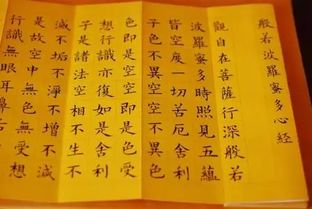 般若波羅蜜多心經
觀自在菩薩行深般若
波羅蜜多時照見五蘊
皆空度一切苦厄舍利
子色不異空空不異色
色即是空空即是色受
想行識亦復如是舍利
子是諸法空相不生不
滅不垢不淨不增不減
是故空中無色無受想
行識無眼耳鼻